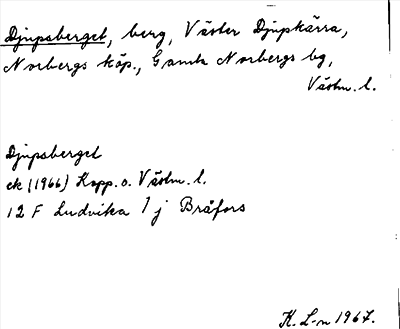 Djupsberget, berg, Väster Djupkärra,
Norbergs köp., Gamla Norbergs bg,
Västm. l.
Djupsberget
ek (1966) Kopp. o. Västm. l.
12 F Ludvika 1 j Bråfors
K. L-n 1967.